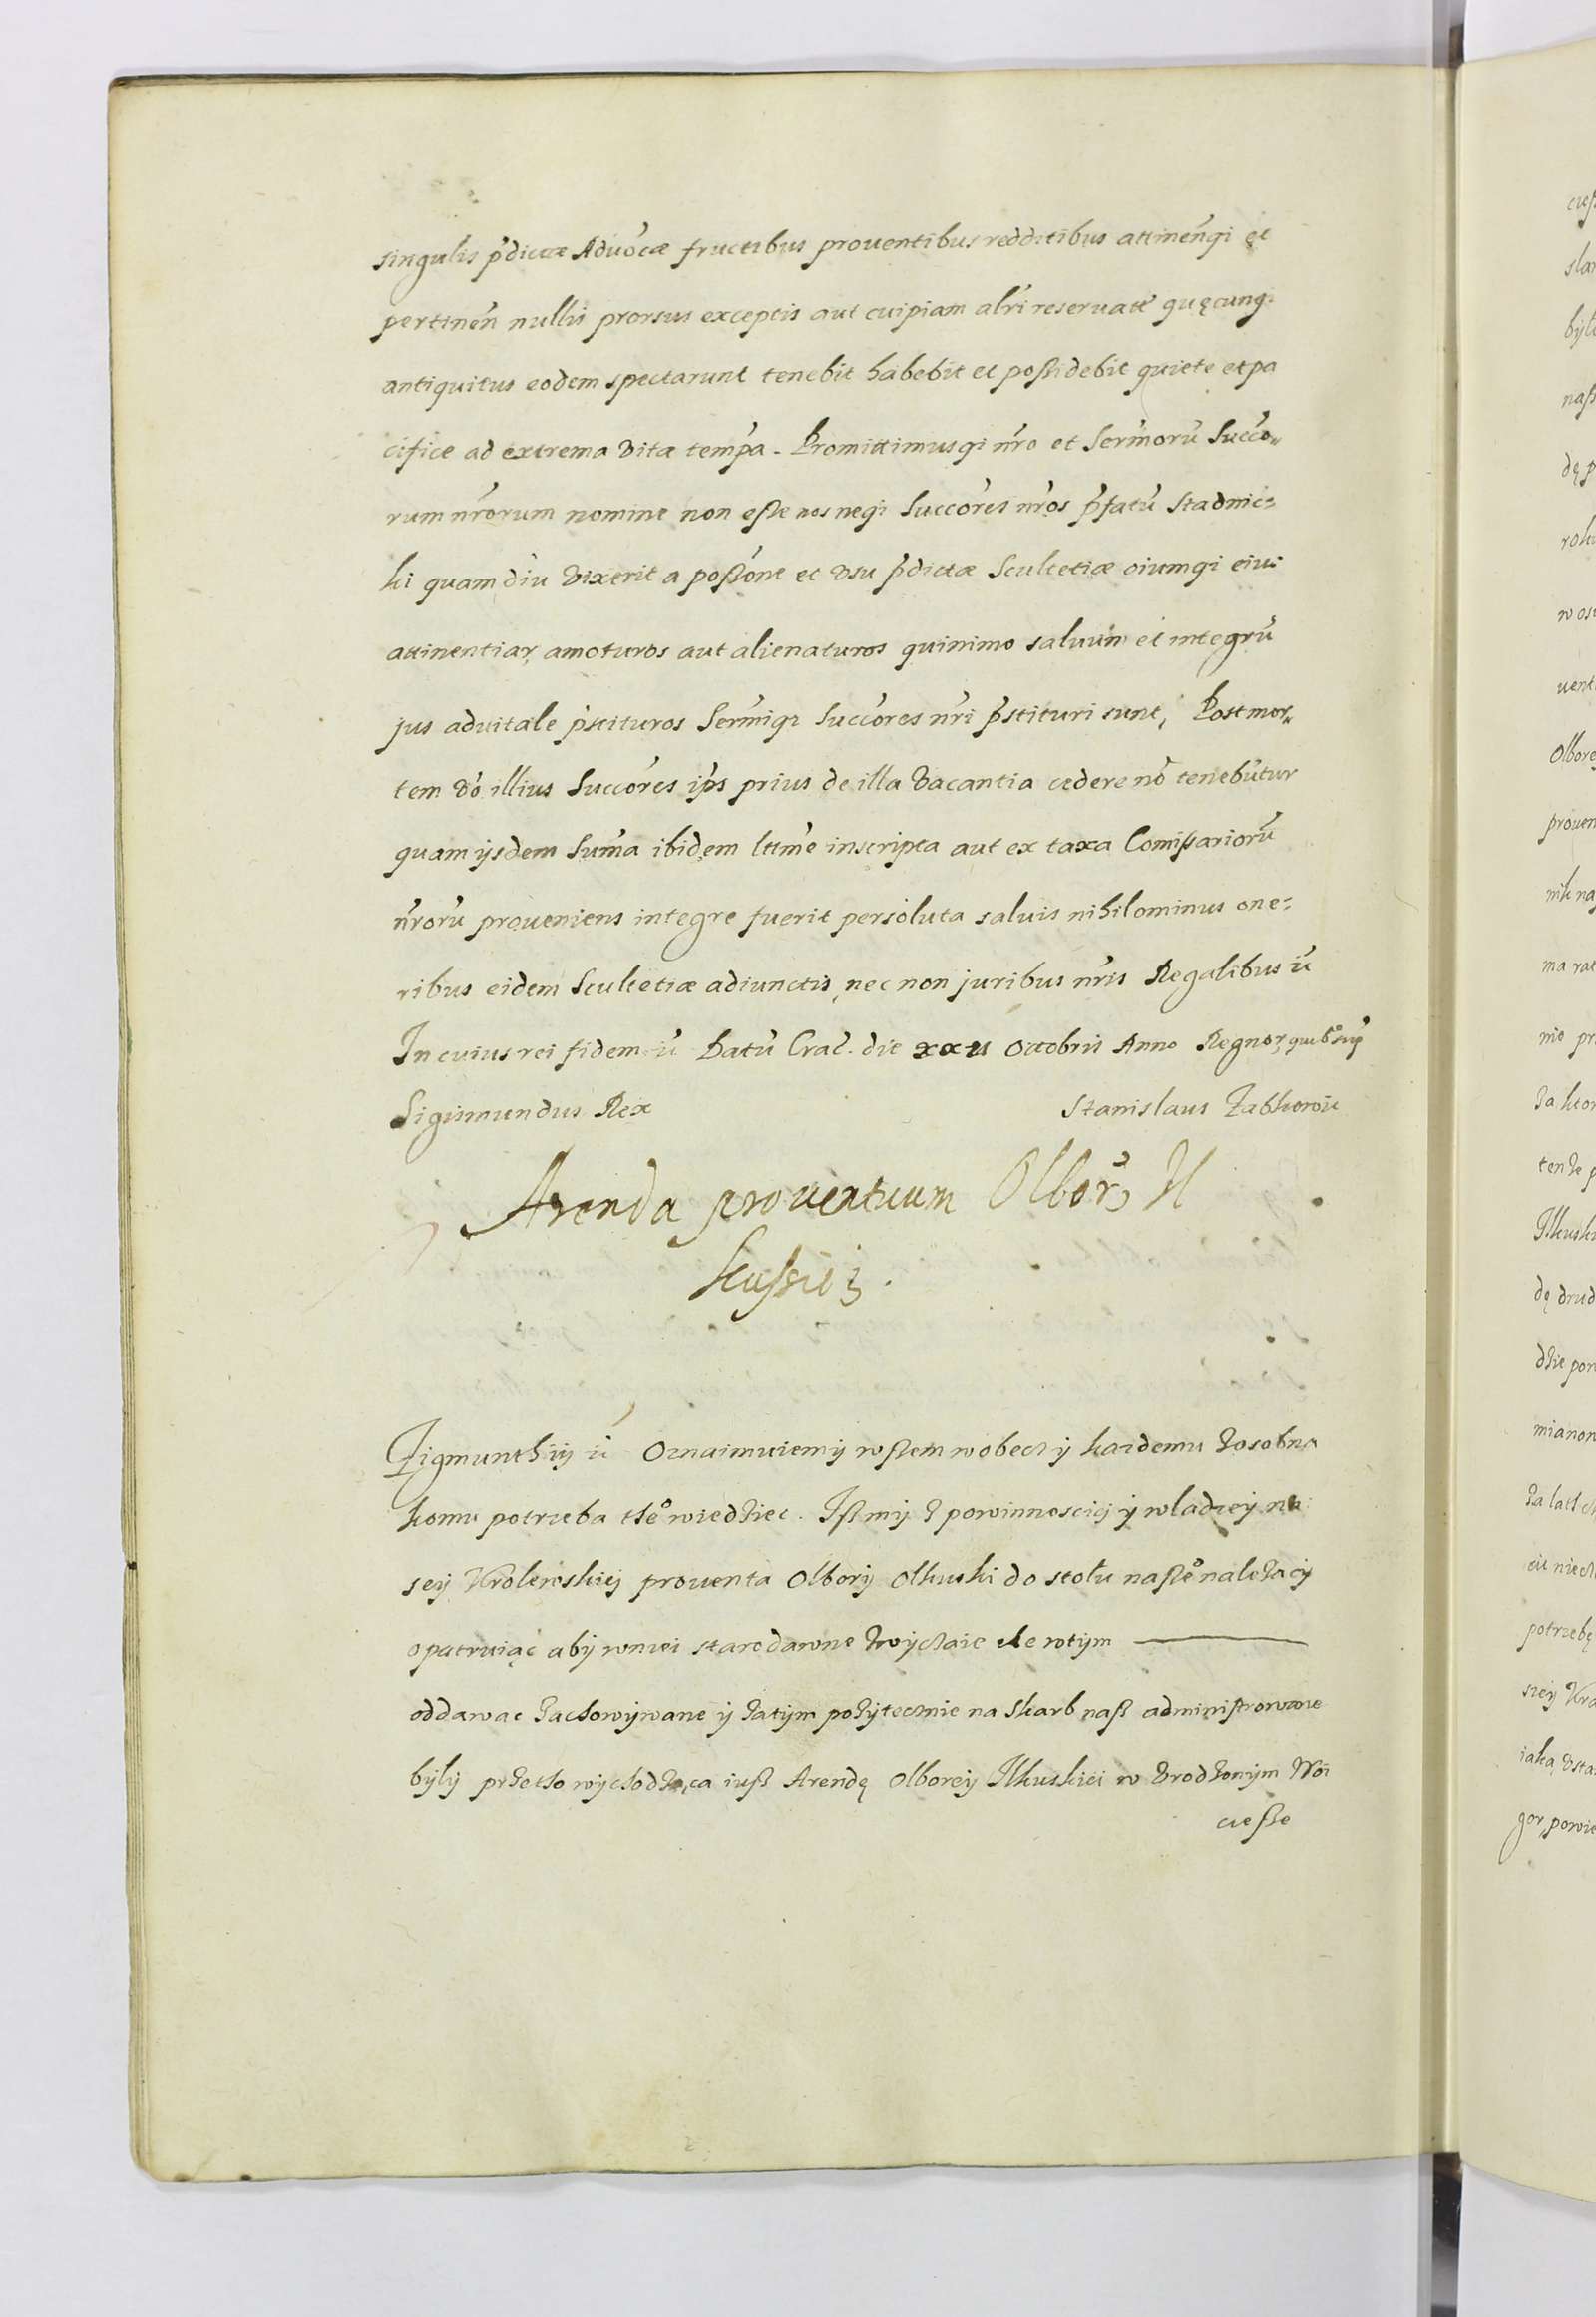 singulis p̃dictæ Aduõcæ fructibus prouentibus redditibus attineñqi et
pertineñ nullis prorsus exceptis aut cuipiam alr̃i reseruatẽ quęcunq:
antiquitus eodem spectarunt tenebit habebit et possidebit quiete et pa
cifice ad extrema vitæ temp̃a. Promittimusqi nr̃o et Sermõrũ Succõ„
rum nr̃orum nomine non esse nos neqi Succõres nr̃os p̃fatũ Stadnic=
ki quam diu vixerit a possõne et vsu p̃dictæ Scultetiæ oiumqi eius
attinentiar, amoturos aut alienaturos quinimo saluum et integrũ
jus aduitale p̃stituros Serm̃iqi Succõres nr̃i p̃stituri sunt, Post mor„
tem vo illius Succõres ip̃s prius de illa vacantia cedere nõ tenebũtur
quam ijsdem Sum̃a ibidem ltime inscripta aut ex taxa Comissariorũ
nr̃orũ proueniens integre fuerit persoluta saluis nihilominus one=
ribus eidem Scultetiæ adiunctis, nec non juribus nr̃is Regalibus ir̃
In cuius rei fidem ir̃ Datũ Crac̃. die xxii Octobris Anno Regnor, quib9 suṗ
Sigismundus Rex Stanislaus Zabkowic
Arenda prouentuum Olbor, Il
kussieñ.
Zigmunth iij ir̃ Oznaimuiemy wssem wobecz y kazdemu zosobna
komu potrzeba tle° wiedziec. Iss my z powinnosciej y wladzey na
sey Krolewskiej prouenta Olbory Olkuski do stołu nasse° należacy
opatruiąc aby wniei starodawne zwyczaie ile wtym ———
oddawac zachowywane y zatym pożytecznie na Skarb nass administrowane
byly przetho wychodzącą iuss Arendę Olborey Ilkuskiei w vrodzonym Woi
ciesse